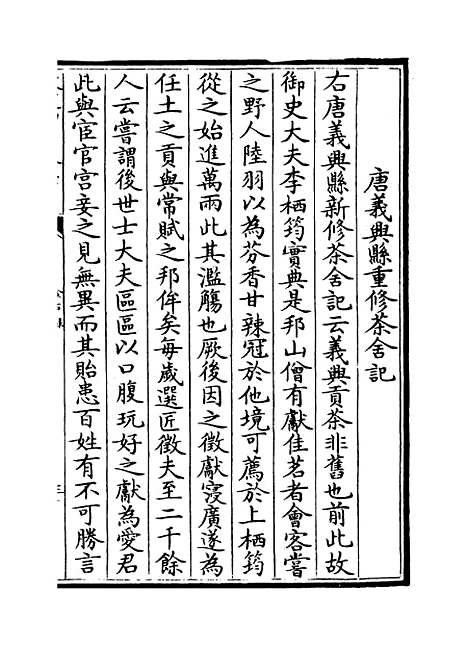 唐義興縣重修茶舍記
右唐義興縣新修茶舍記云義興貢茶非舊也前此故
御史大夫李栖筠實典是邦山僧有獻佳茗者會客嘗
之野人陸羽以為芬香甘辣冠於他境可薦於上栖筠
從之始進萬兩此其濫觴也厥後因之徵獻寖廣遂為
任土之貢與常賦之邦侔矣每歲選匠徵夫至二千餘
人云嘗謂後世士大夫區區以口腹玩好之獻為愛君
此與宦官宫妾之見無異而其貽患百姓有不可勝言